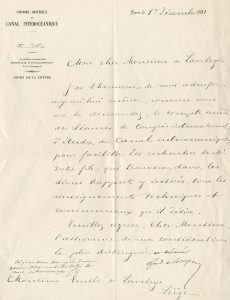 COMPAGNIE UNIVERSELLE
DU
CANAL INTEROCÉANIQUE
OBJET DE LA LETTRE
Paris le 1er Décembre 1881
Mon cher Monsieur de Laveleye
J'ai l'honneur de vous adresser
aujourd'hui même, comme vous
me le demandez, le compte rendu
des séances du Congrès international
d'Études du Canal interocéanique
pour faciliter les recherches de M.
votre fils, qui trouvera, dans les
divers rapports y insérés, tous les
renseignements techniques et
commerciaux qu'il désire.
Veuillez agréer, Cher Monsieur
l'assurance de ma considération
la plus distinguée
Ferd. de Lesseps
Monsieur Émile de Laveleye
Liège